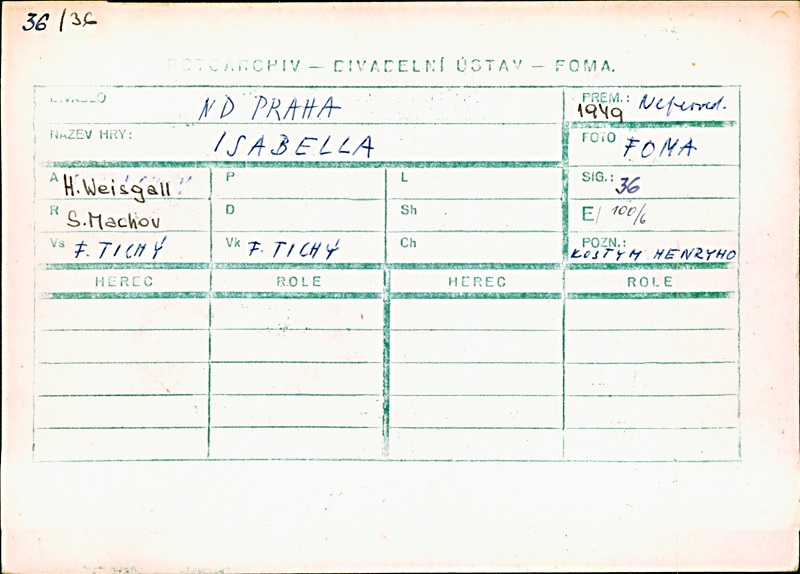 36/36
FOTOARCHIV – DIVADELNÍ ÚSTAV – FOMA.
DIVADLO ND PRAHA PREM.: Neproved. 1949
NÁZEV HRY: ISABELLA FOTO FOMA
A H. Weisgall P L SIG.: 36
R S. Machov D Sh E/ 100/6
Vs F. TICHÝ Vk F. TICHÝ Ch POZN.: KOSTYM HENRYHO
HEREC ROLE HEREC ROLE